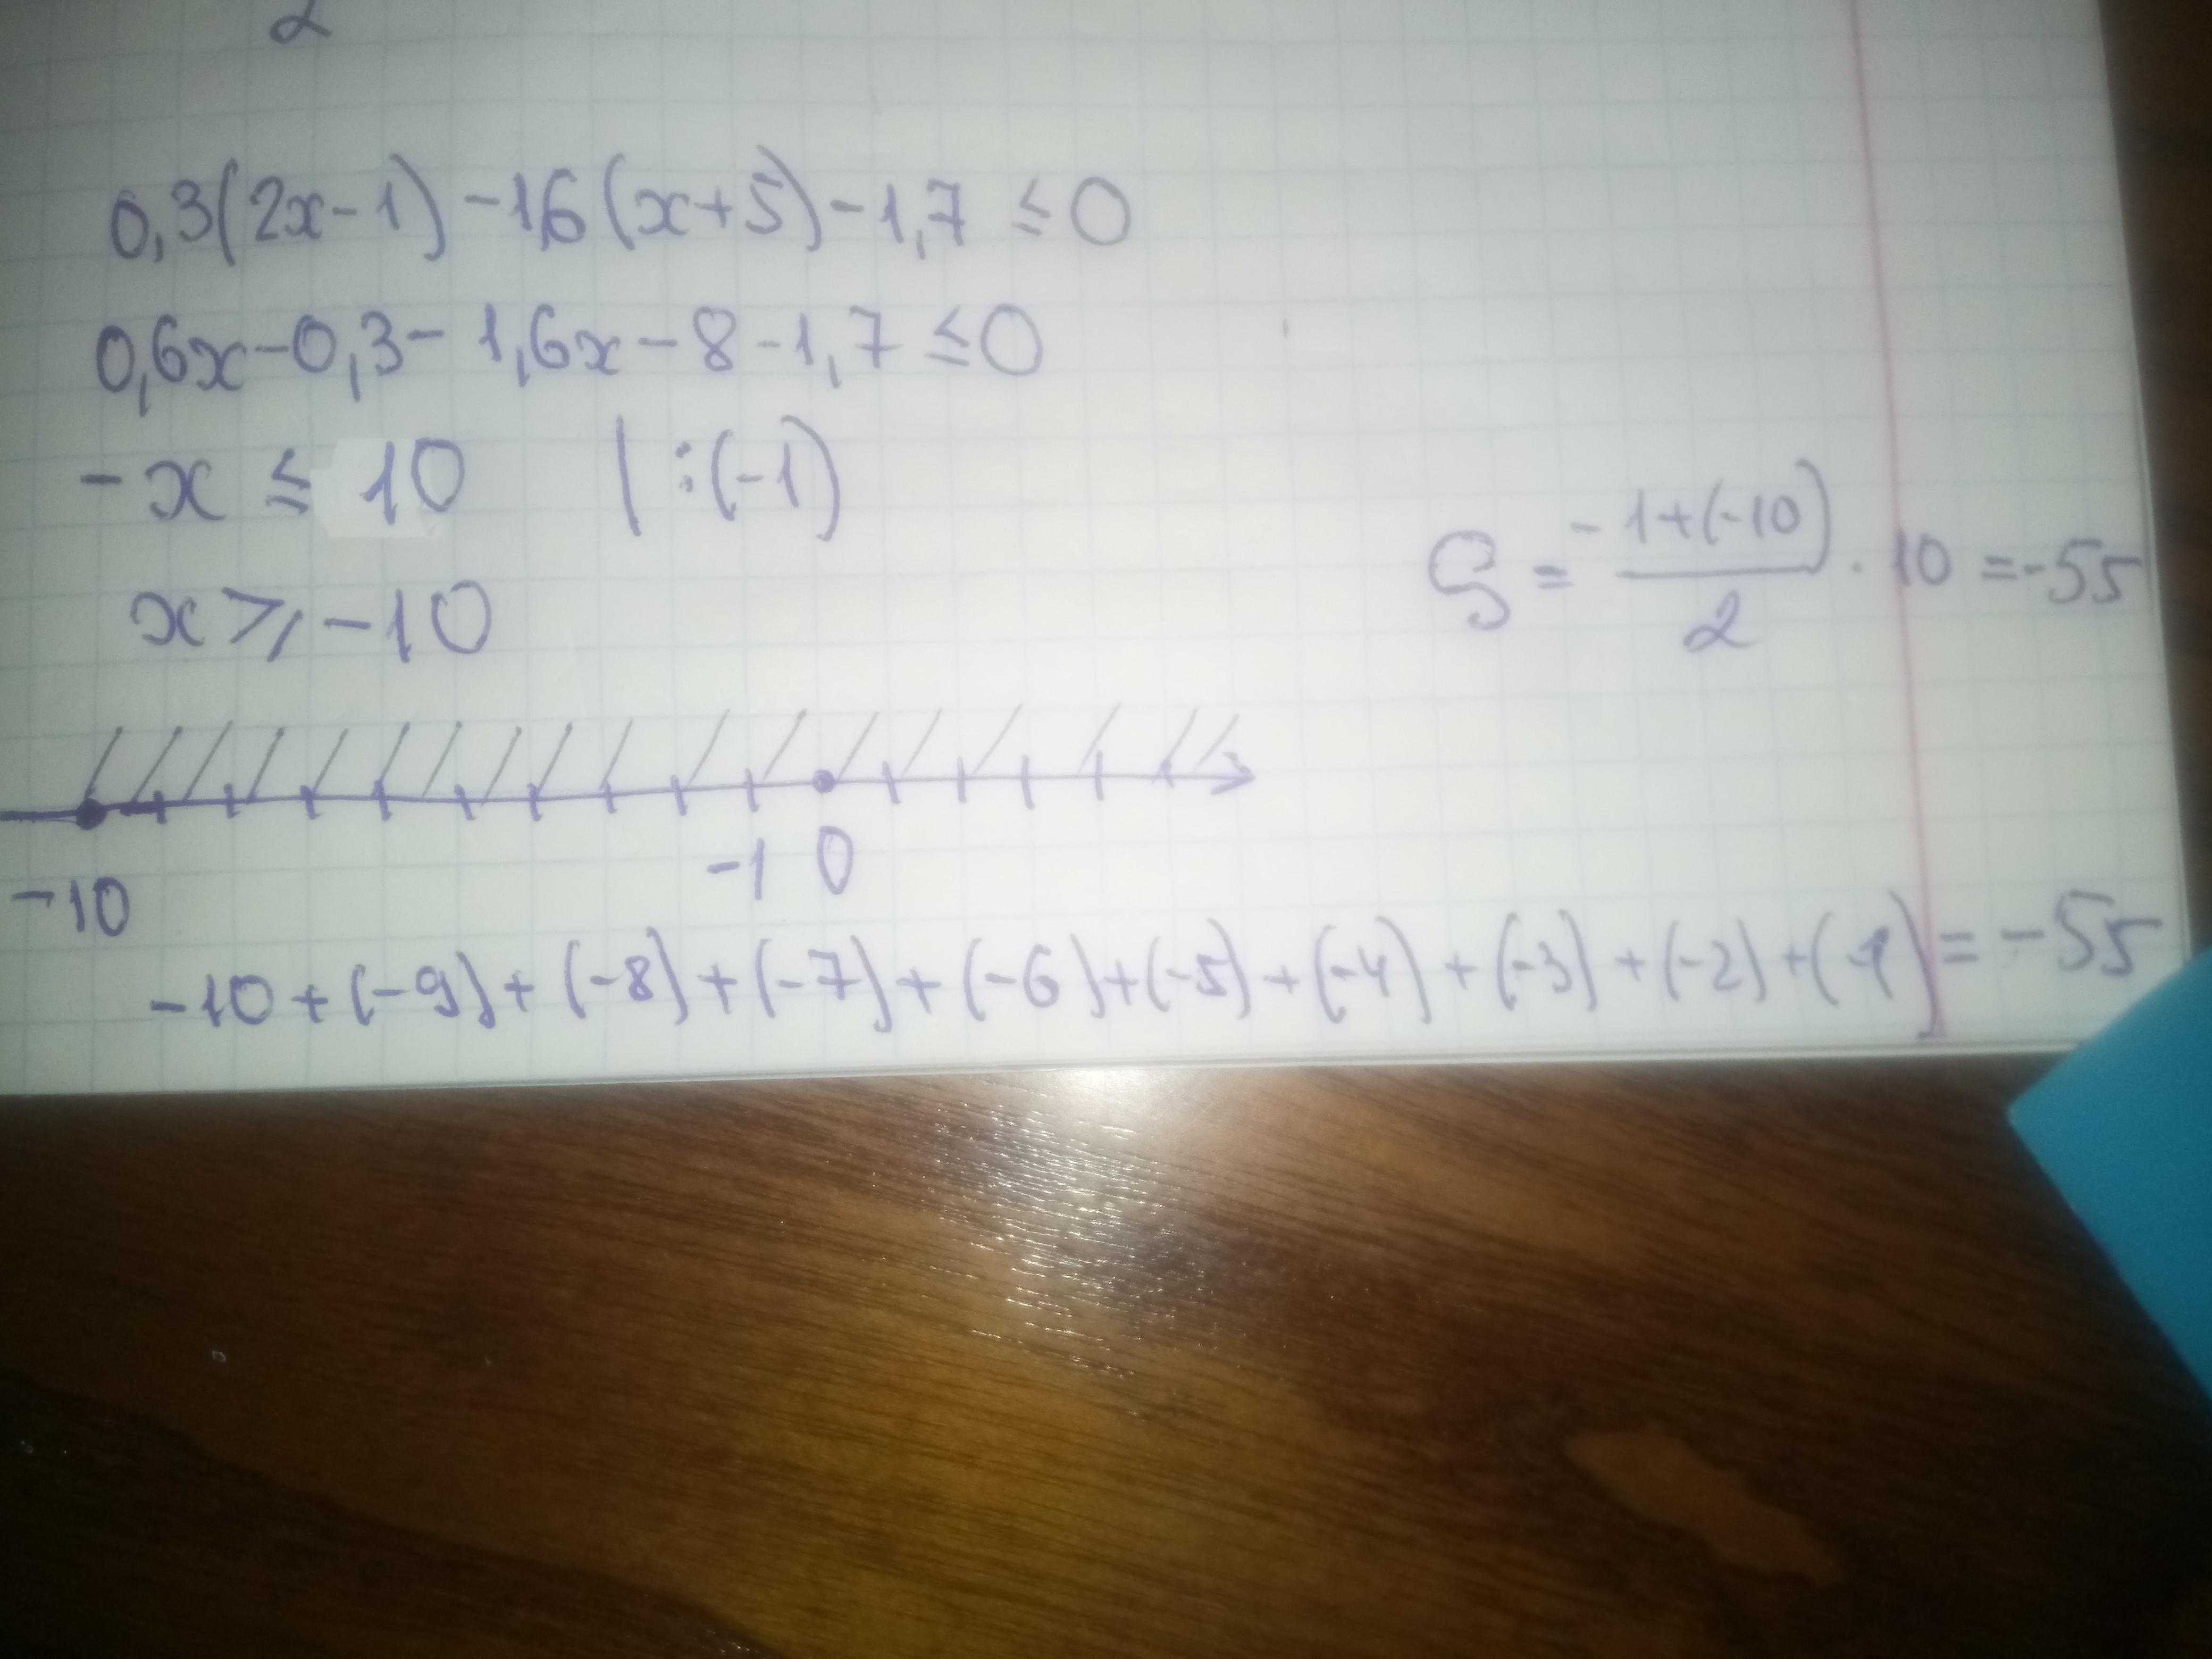 2
0,3(2x-1)-1,6(x+5)-1,7 ≤ 0
0,6x-0,3-1,6x-8-1,7 ≤ 0
-x ≤ 10 | :(-1)
x ⩾ -10
S = (-1+(-10))/2 · 10 = -55
-10 -1 0
-10+(-9)+(-8)+(-7)+(-6)+(-5)+(-4)+(-3)+(-2)+(-1)=-55